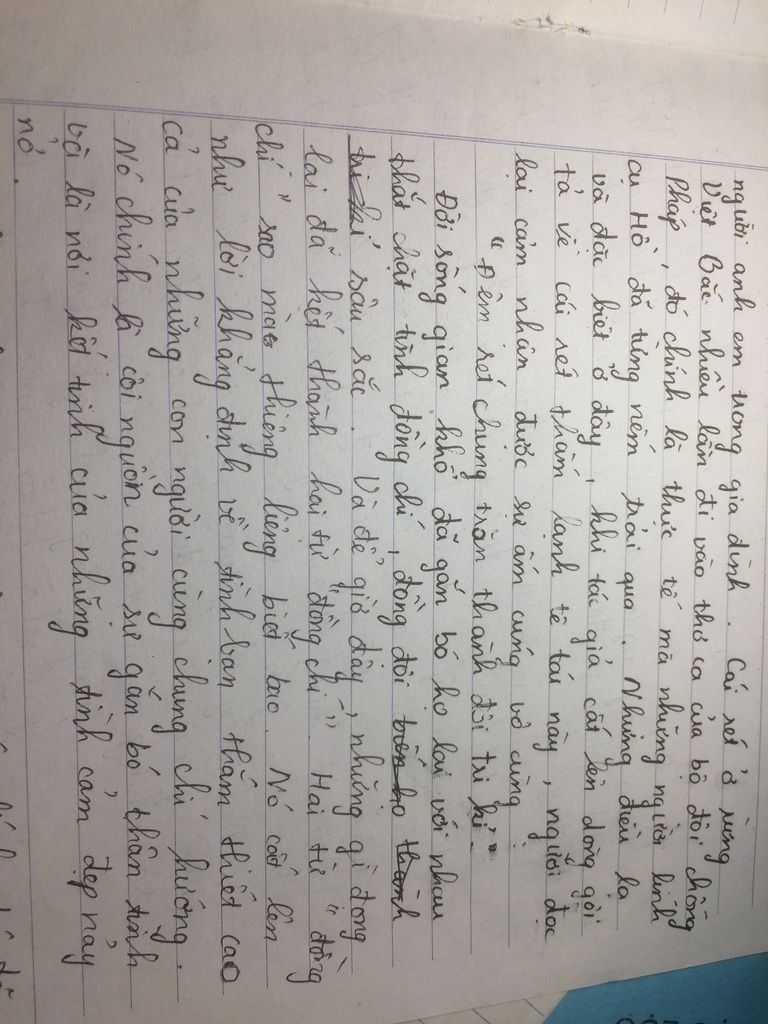 người anh em trong gia đình. Cái rét ở rừng
Việt Bắc nhiều lần đi vào thơ ca của bộ đội chống
Pháp, đó chính là thực tế mà những người lính
cụ Hồ đã từng nếm trải qua. Nhưng điều lạ
và đặc biệt ở đây, khi tác giả cất lên dòng gợi
tả về cái rét thấm lạnh tê tái này, người đọc
lại cảm nhận được sự ấm cúng vô cùng
"Đêm rét chung trăn thành đôi tri kỉ".
Đời sống gian khổ đã gắn bó họ lại với nhau
thắt chặt tình đồng chí, đồng đội
sâu sắc. Và để giờ đây, những gì đọng
lại đã kết thành hai từ "đồng chí". Hai từ "đồng
chí" sao mà thiêng liêng biết bao. Nó cất lên
như lời khẳng định về tình bạn thắm thiết cao
cả của những con người cùng chung chí hướng.
Nó chính là cội nguồn của sự gắn bó thân tình
và là nơi kết tinh của những tình cảm đẹp nảy
nở.